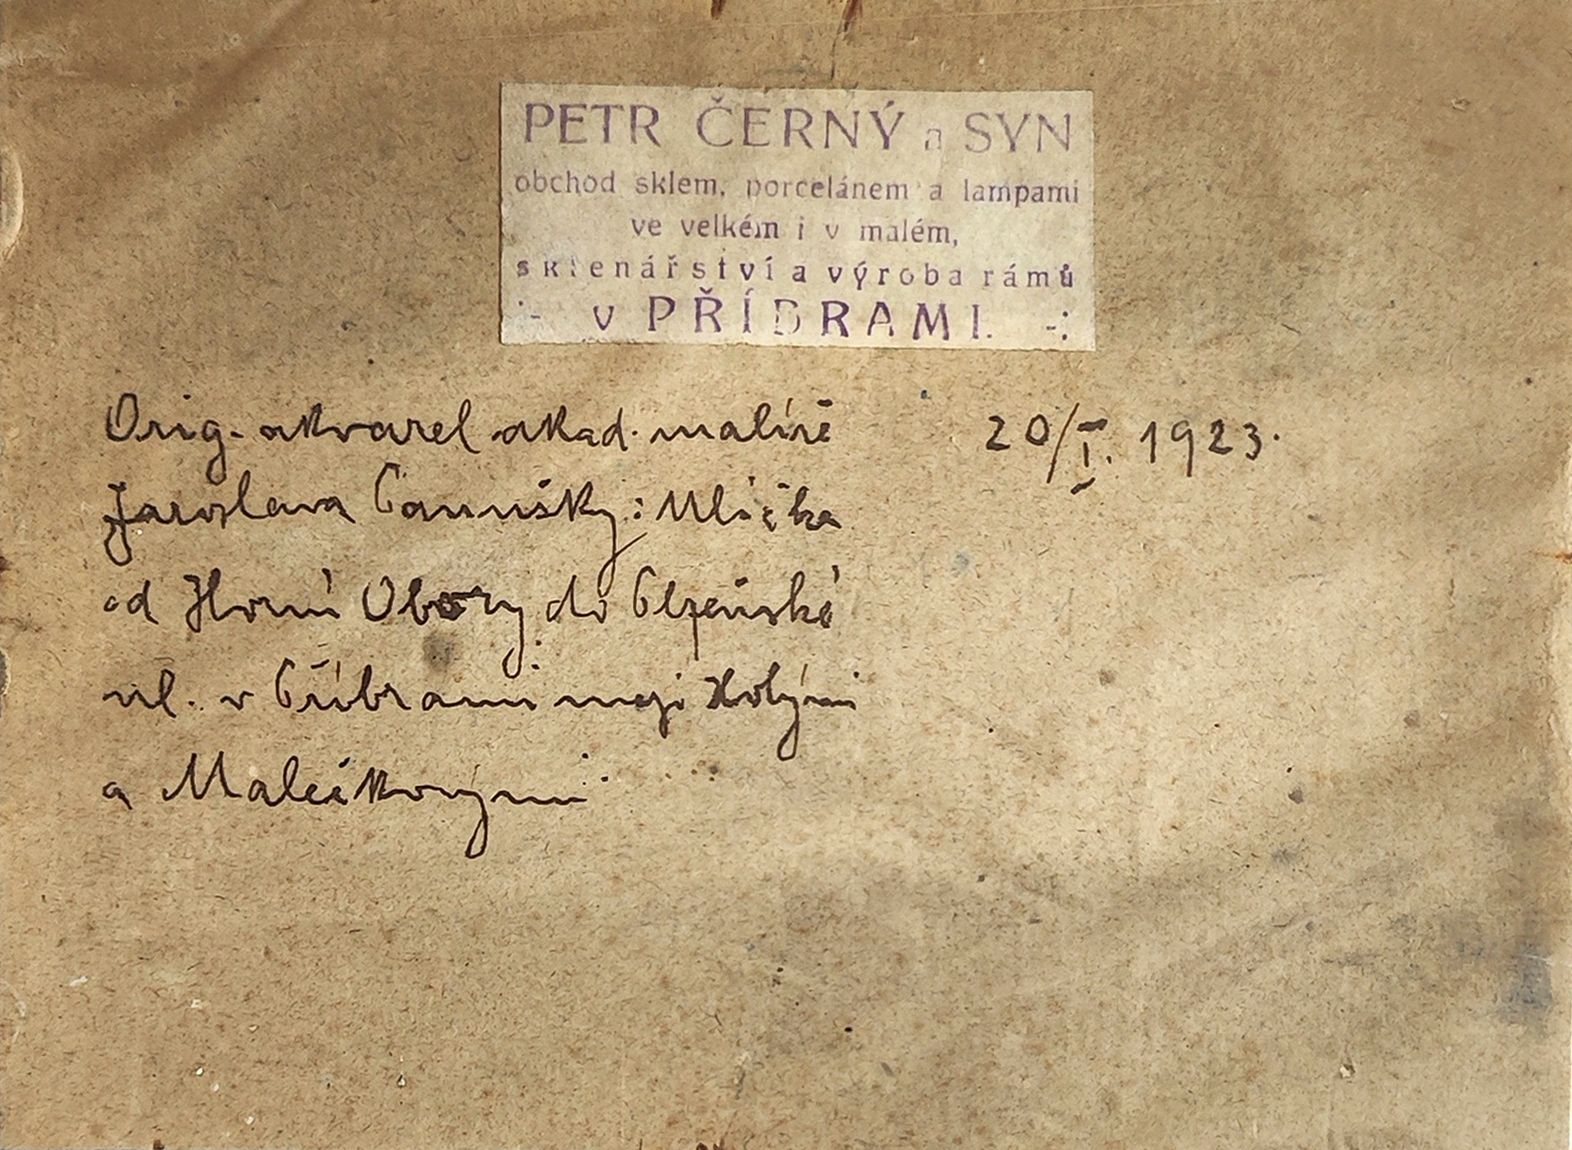 PETR ČERNÝ a SYN
obchod sklem, porcelánem a lampami
ve velkém i v malém,
sklenářství a výroba rámů
:- v PŘÍBRAMI. -:
Orig. akvarel akad. malíře 20/I. 1923.
Jaroslava Panušky: Ulička
od Horní Obory do Plzeňské
ul. v Příbrami mezi Holými
a